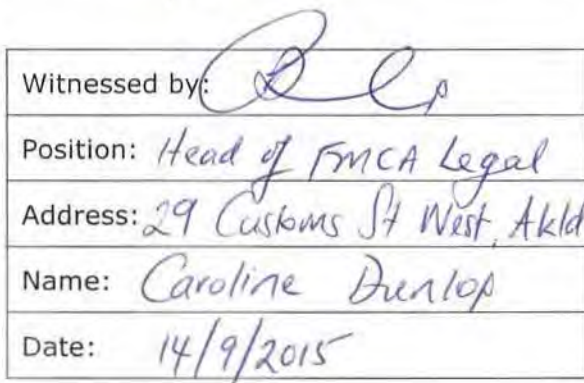 Witnessed by:
Position: Head of FMCA Legal
Address: 29 Customs St West, Akld
Name: Caroline Dunlop
Date: 14/9/2015